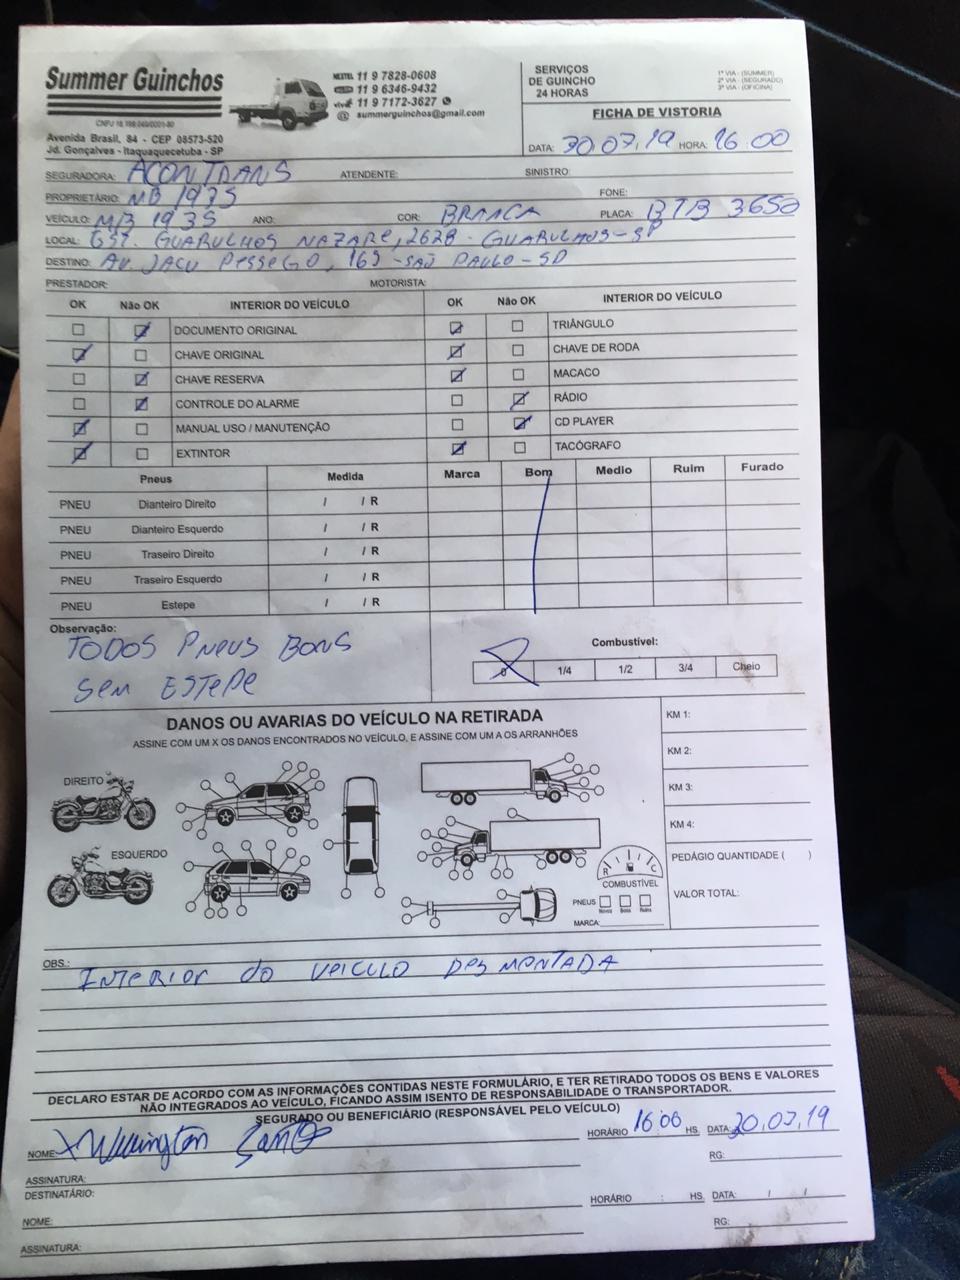 Summer Guinchos
Avenida Brasil, 84 - CEP 08573-520
Jd. Gonçalves - Itaquaquecetuba - SP
NEXTEL 11 9 7828-0608
11 9 6346-9432
vivo 11 9 7172-3627
@ summerguinchos@gmail.com
SERVIÇOS
DE GUINCHO
24 HORAS
1ª VIA - (SUMMER)
2ª VIA - (SEGURADO)
3ª VIA - (OFICINA)
FICHA DE VISTORIA
DATA: 30.07.19 HORA: 16:00
SEGURADORA: ACONTRANS ATENDENTE: SINISTRO:
PROPRIETÁRIO: MB 1935 FONE:
VEÍCULO: MB 1935 ANO: COR: BRANCA PLACA: BTB 3650
LOCAL: EST. GUARULHOS NAZARE, 2628 - GUARULHOS - SP
DESTINO: AV. JACU PESSEGO, 165 - SAO PAULO - SP
PRESTADOR: MOTORISTA:
OK Não OK INTERIOR DO VEÍCULO OK Não OK INTERIOR DO VEÍCULO
DOCUMENTO ORIGINAL TRIÂNGULO
CHAVE ORIGINAL CHAVE DE RODA
CHAVE RESERVA MACACO
CONTROLE DO ALARME RÁDIO
MANUAL USO / MANUTENÇÃO CD PLAYER
EXTINTOR TACÓGRAFO
Pneus Medida Marca Bom Medio Ruim Furado
PNEU Dianteiro Direito / / R
PNEU Dianteiro Esquerdo / / R
PNEU Traseiro Direito / / R
PNEU Traseiro Esquerdo / / R
PNEU Estepe / / R
Observação:
TODOS PNEUS BONS
SEM ESTEPE
Combustível:
0 1/4 1/2 3/4 Cheio
DANOS OU AVARIAS DO VEÍCULO NA RETIRADA
ASSINE COM UM X OS DANOS ENCONTRADOS NO VEÍCULO, E ASSINE COM UM A OS ARRANHÕES
DIREITO
ESQUERDO
R C
COMBUSTÍVEL
PNEUS
Novos Bons Ruins
MARCA:
KM 1:
KM 2:
KM 3:
KM 4:
PEDÁGIO QUANTIDADE ( )
VALOR TOTAL:
OBS.: INTERIOR do VEICULO DESMONTADA
DECLARO ESTAR DE ACORDO COM AS INFORMAÇÕES CONTIDAS NESTE FORMULÁRIO, E TER RETIRADO TODOS OS BENS E VALORES
NÃO INTEGRADOS AO VEÍCULO, FICANDO ASSIM ISENTO DE RESPONSABILIDADE O TRANSPORTADOR.
SEGURADO OU BENEFICIÁRIO (RESPONSÁVEL PELO VEÍCULO)
NOME: HORÁRIO 16:00 HS. DATA: 30.07.19
RG:
ASSINATURA:
DESTINATÁRIO: HORÁRIO : HS. DATA: / /
NOME: RG:
ASSINATURA: